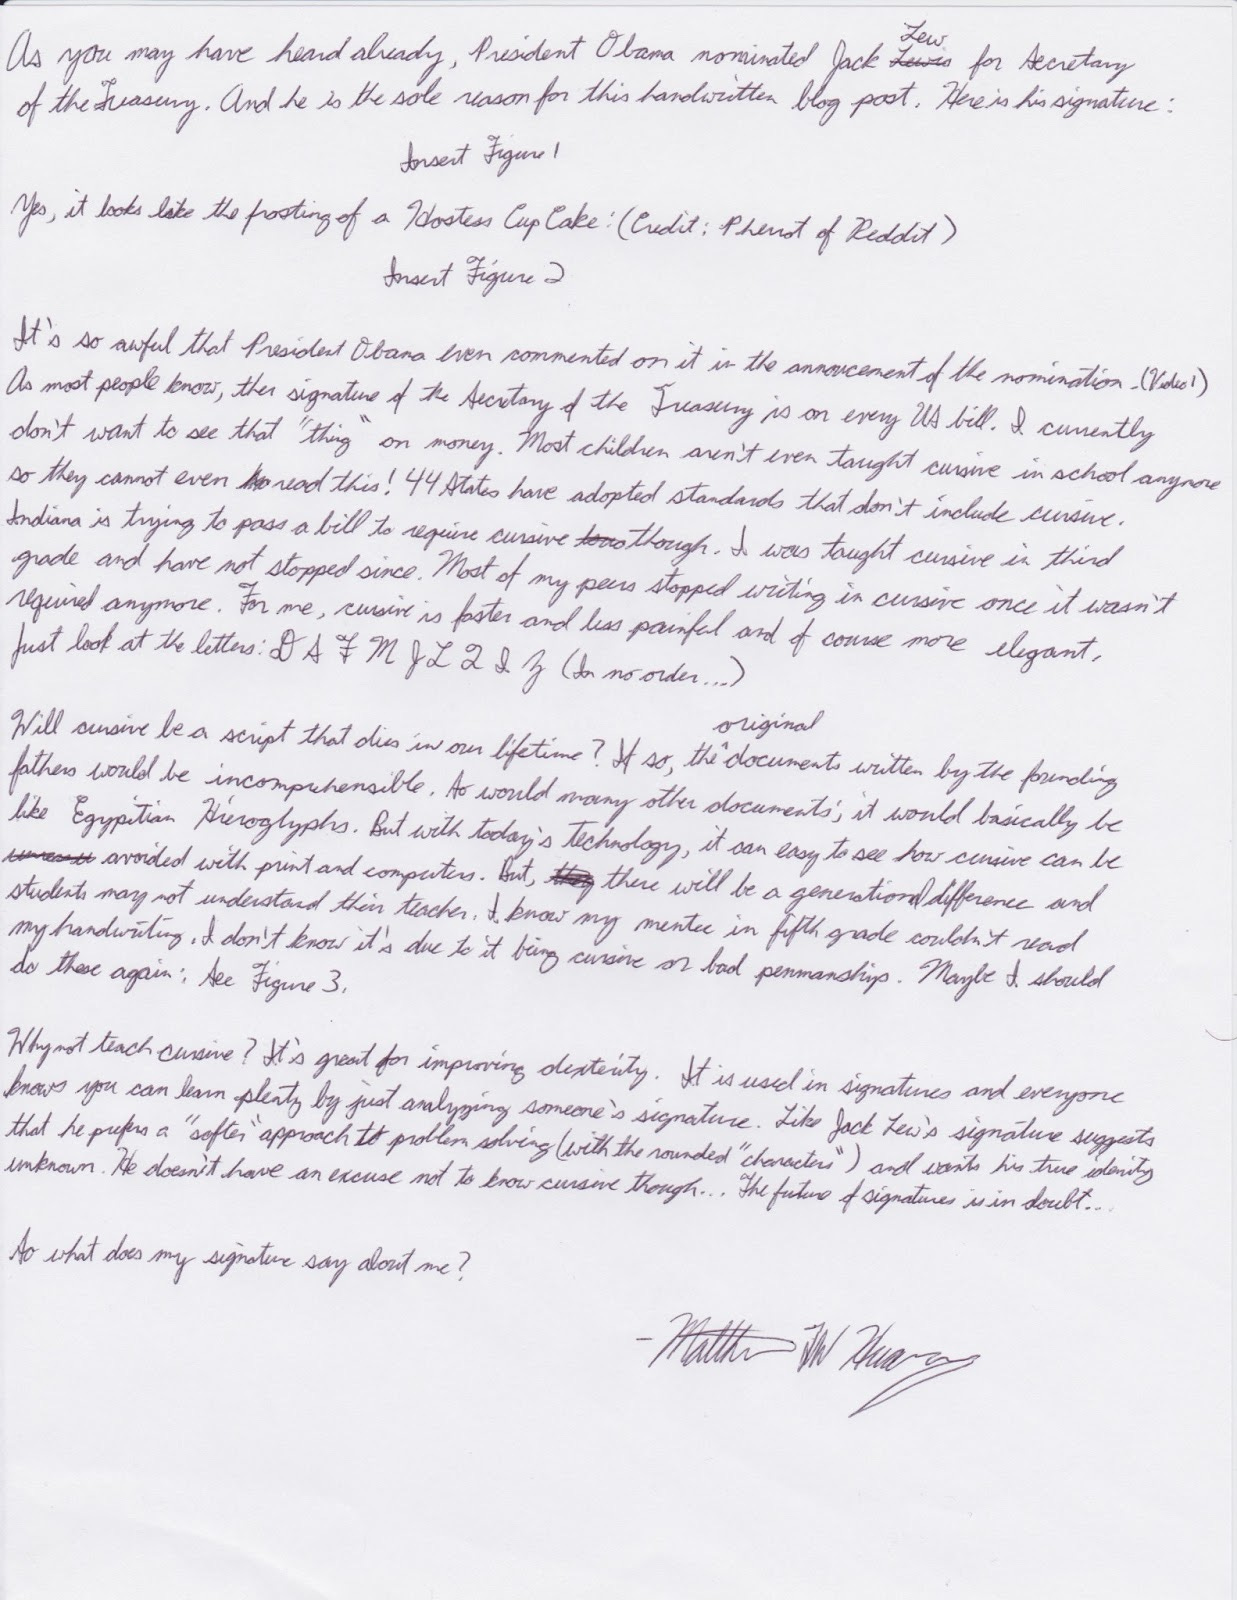 As you may have heard already, President Obama nominated Jack Lew for Secretary
of the Treasury. And he is the sole reason for this handwritten blog post. Here is his signature:
Insert Figure 1
Yes, it looks like the frosting of a Hostess CupCake: (Credit: Pherrot of Reddit)
Insert Figure 2
It's so awful that President Obama even commented on it in the annoucement of the nomination. (Video 1)
As most people know, ther signature of the Secretary of the Treasury is on every US bill. I currently
don't want to see that "thing" on money. Most children aren't even taught cursive in school anymore
so they cannot even read this! 44 States have adopted standards that don't include cursive.
Indiana is trying to pass a bill to require cursive though. I was taught cursive in third
grade and have not stopped since. Most of my peers stopped writing in cursive once it wasn't
required anymore. For me, cursive is faster and less painful and of course more elegant.
Just look at the letters: D S F M J L Q I Z (In no order...)
Will cursive be a script that dies in our lifetime? If so, the original documents written by the founding
fathers would be incomprehensible. So would many other documents; it would basically be
like Egypitian Hieroglyphs. But with today's technology, it can easy to see how cursive can be
avoided with print and computers. But, there will be a generational difference and
students may not understand their teacher. I know my mentee in fifth grade couldn't read
my handwriting. I don't know it's due to it being cursive or bad penmanship. Maybe I should
do these again: See Figure 3.
Why not teach cursive? It's great for improving dexterity. It is used in signatures and everyone
knows you can learn plenty by just analyzing someone's signature. Like Jack Lew's signature suggests
that he prefers a "softer" approach to problem solving (with the rounded "characters") and wants his true idenity
unknown. He doesn't have an excuse not to know cursive though... The future of signatures is in doubt...
So what does my signature say about me?
-Matth FW Huang